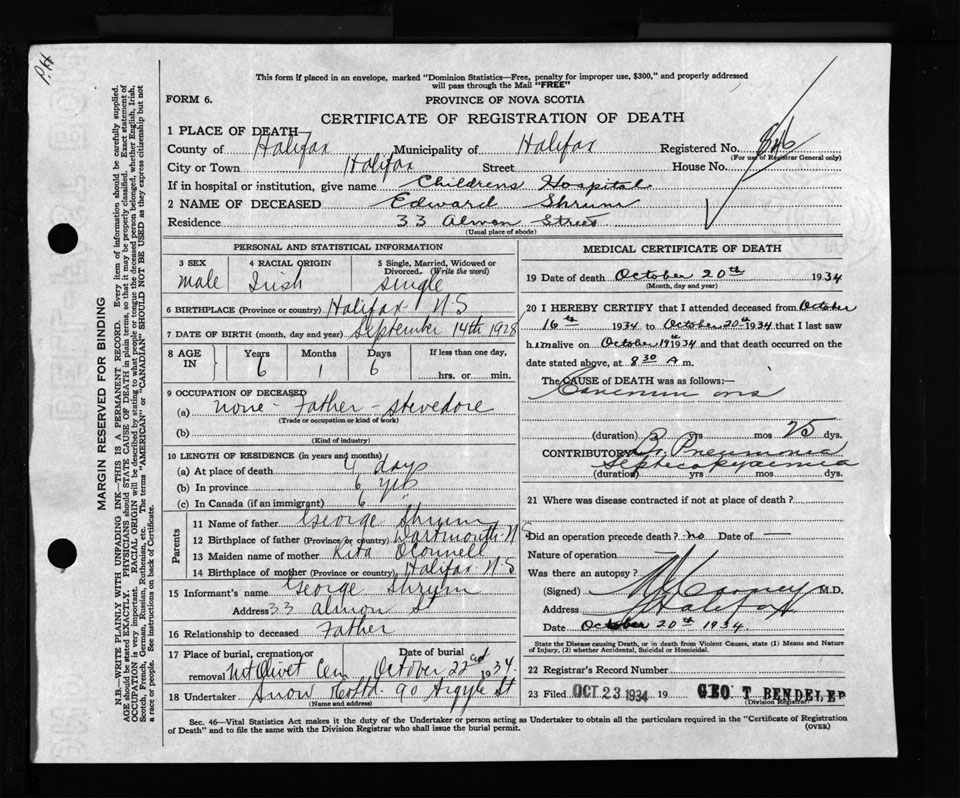 P.H
This form if placed in an envelope, marked "Dominion Statistics—Free, penalty for improper use, $300," and properly addressed
will pass through the Mail "FREE"
FORM 6.
PROVINCE OF NOVA SCOTIA
CERTIFICATE OF REGISTRATION OF DEATH
1 PLACE OF DEATH—
County of Halifax Municipality of Halifax Registered No.
(For use of Registrar General only)
City or Town Halifax Street House No.
If in hospital or institution, give name Childrens Hospital
2 NAME OF DECEASED Edward Shrum
Residence 33 Almon Street
(Usual place of abode)
PERSONAL AND STATISTICAL INFORMATION
3 SEX 4 RACIAL ORIGIN 5 Single, Married, Widowed or
Divorced. (Write the word)
male Irish single
6 BIRTHPLACE (Province or country) Halifax N.S
7 DATE OF BIRTH (month, day and year) September 14th 1928
8 AGE IN Years Months Days If less than one day,
6 1 6 hrs. or min.
9 OCCUPATION OF DECEASED
(a) none - Father - Stevedore
(Trade or occupation or kind of work)
(b)
(Kind of industry)
10 LENGTH OF RESIDENCE (in years and months)
(a) At place of death 4 days
(b) In province 6 yrs
(c) In Canada (if an immigrant) 6
Parents
11 Name of father George Shrum
12 Birthplace of father (Province or country) Dartmouth N.S
13 Maiden name of mother Rita OConnell
14 Birthplace of mother (Province or country) Halifax N.S
15 Informant's name George Shrum
Address 33 Almon St
16 Relationship to deceased Father
17 Place of burial, cremation or Date of burial
removal Mt Olivet Cem October 22nd 1934
18 Undertaker Snow Co Ltd. 90 Argyle St
(Name and address)
MEDICAL CERTIFICATE OF DEATH
19 Date of death October 20th 1934
(Month, day and year)
20 I HEREBY CERTIFY that I attended deceased from October
16th 1934 to October 20th 1934 that I last saw
h im alive on October 19th 1934 and that death occurred on the
date stated above, at 8 30 A m.
The CAUSE of DEATH was as follows:—
Cancrum oris
(duration) yrs mos 25 dys.
CONTRIBUTORY Br. Pneumonia
Septicopyaemia
(duration) yrs mos dys.
21 Where was disease contracted if not at place of death?
Did an operation precede death? no Date of —
Nature of operation
Was there an autopsy?
(Signed) M.D.
Address Halifax
Date October 20th 1934
State the Disease causing Death, or in death from Violent Causes, state (1) Means and Nature
of Injury, (2) whether Accidental, Suicidal or Homicidal.
22 Registrar's Record Number
23 Filed OCT 23 1934 19 GEO T BENDELER
(Division Registrar)
Sec. 46—Vital Statistics Act makes it the duty of the Undertaker or person acting as Undertaker to obtain all the particulars required in the "Certificate of Registration
of Death" and to file the same with the Division Registrar who shall issue the burial permit.
(OVER)
MARGIN RESERVED FOR BINDING
N.B.—WRITE PLAINLY WITH UNFADING INK—THIS IS A PERMANENT RECORD. Every item of information should be carefully supplied.
AGE should be stated EXACTLY. PHYSICIANS should STATE CAUSE OF DEATH in plain terms, so that it may be properly classified. Exact statement of
OCCUPATION is very important. RACIAL ORIGIN will be described by stating to what people or tongue the deceased person belonged, whether English, Irish,
Scotch, French, German, Russian, Ruthenian, etc. The terms "AMERICAN" or "CANADIAN" SHOULD NOT BE USED as they express citizenship but not
a race or people. See instructions on back of Certificate.